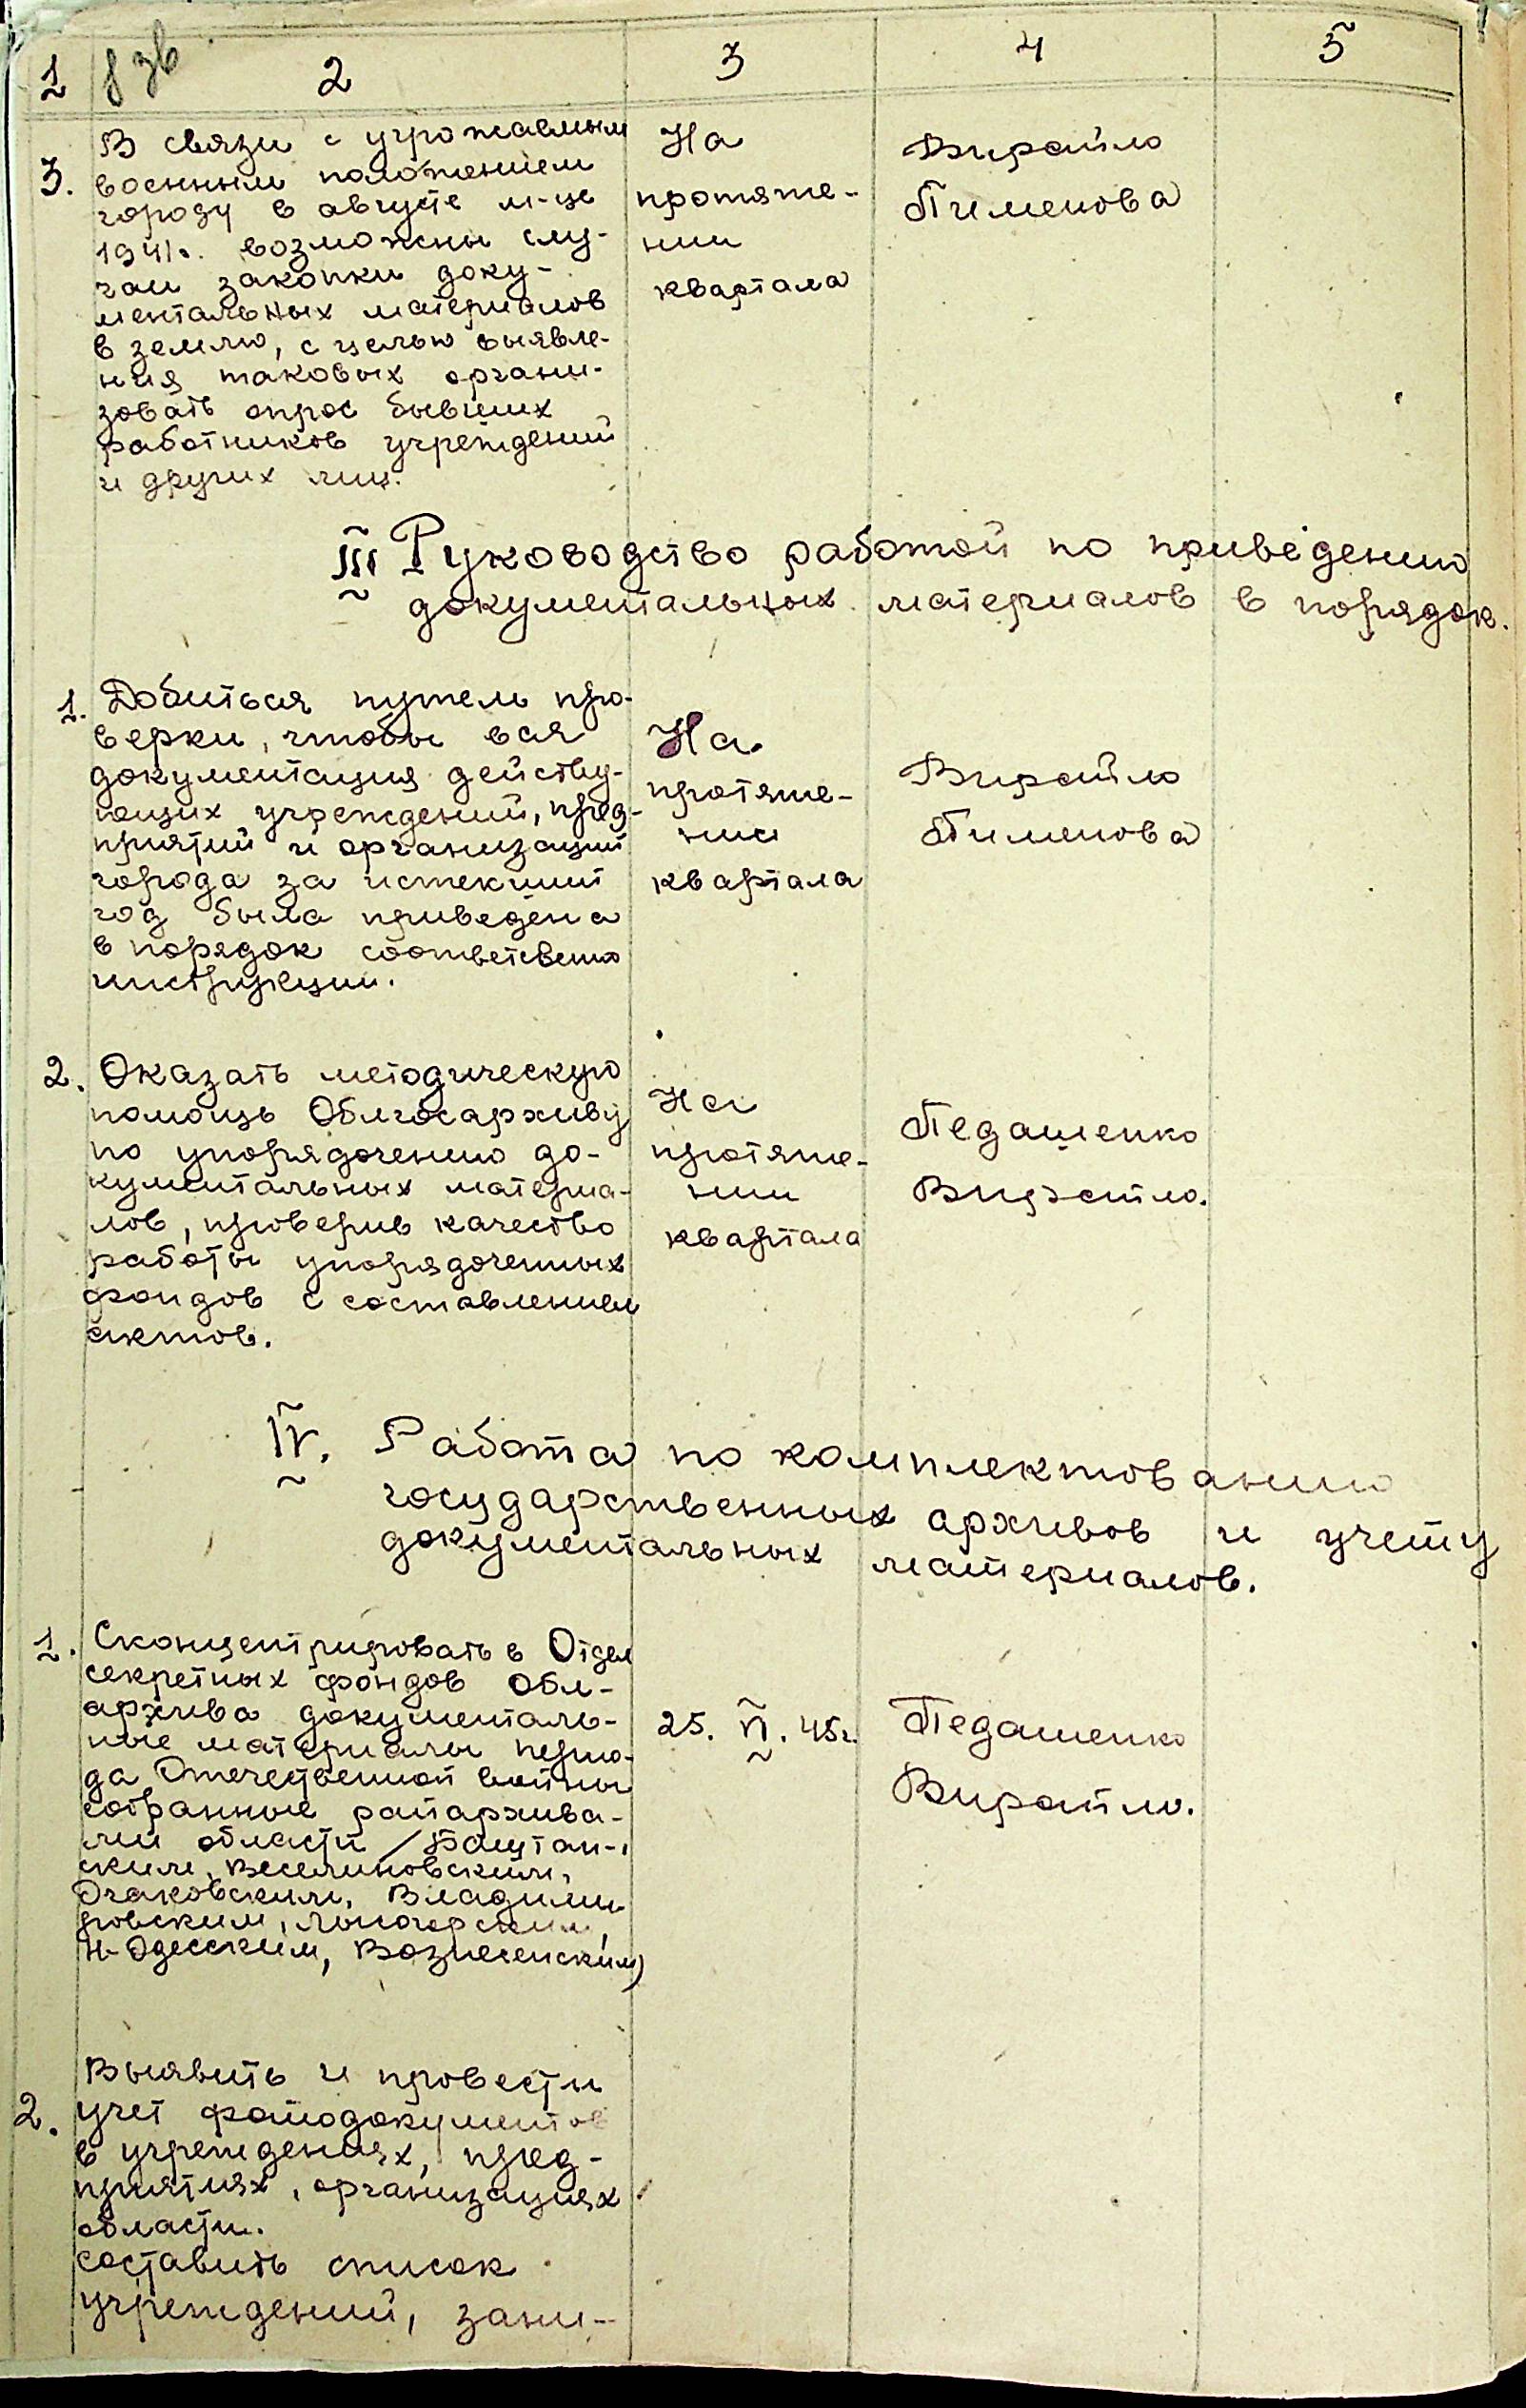 1 8 зв 2 3 4 5
3. В связи с угрожаемым
военным положением
городу в августе м-це
1941г. возможны слу-
чаи закопки доку-
ментальных материалов
в землю, с целью выявле-
ния таковых органи-
зовать опрос бывших
работников учреждений
и других лиц.
На
протяже-
нии
квартала
Вирайло
Пименова
III Руководство работой по приведению
документальных материалов в порядок.
1. Добиться путем про-
верки, чтобы вся
документация действу-
ющих учреждений, пред-
приятий и организаций
города за истекший
год была приведена
в порядок соответственно
инструкции.
На
протяже-
нии
квартала
Вирайло
Пименова
2. Оказать методическую
помощь Облгосархиву
по упорядочению до-
кументальных материа-
лов, проверив качество
работы упорядоченных
фондов с составлением
актов.
На
протяже-
нии
квартала
Педашенко
Вирайло.
IV. Работа по комплектованию
государственных архивов и учету
документальных материалов.
1. Сконцентрировать в Отдел
секретных фондов Обл-
архива документаль-
ные материалы перио-
да Отечественной войны
собранные райархива-
ми области /Баштан-
ским, Веселиновским,
Очаковским, Владими-
ровским, Лысогорским,
Н-Одесским, Вознесенским)
25. VI. 45г.
Педашенко
Вирайло.
2. Выявить и провести
учет фотодокументов
в учреждениях, пред-
приятиях, организациях
области.
Составить список
учреждений, зани-